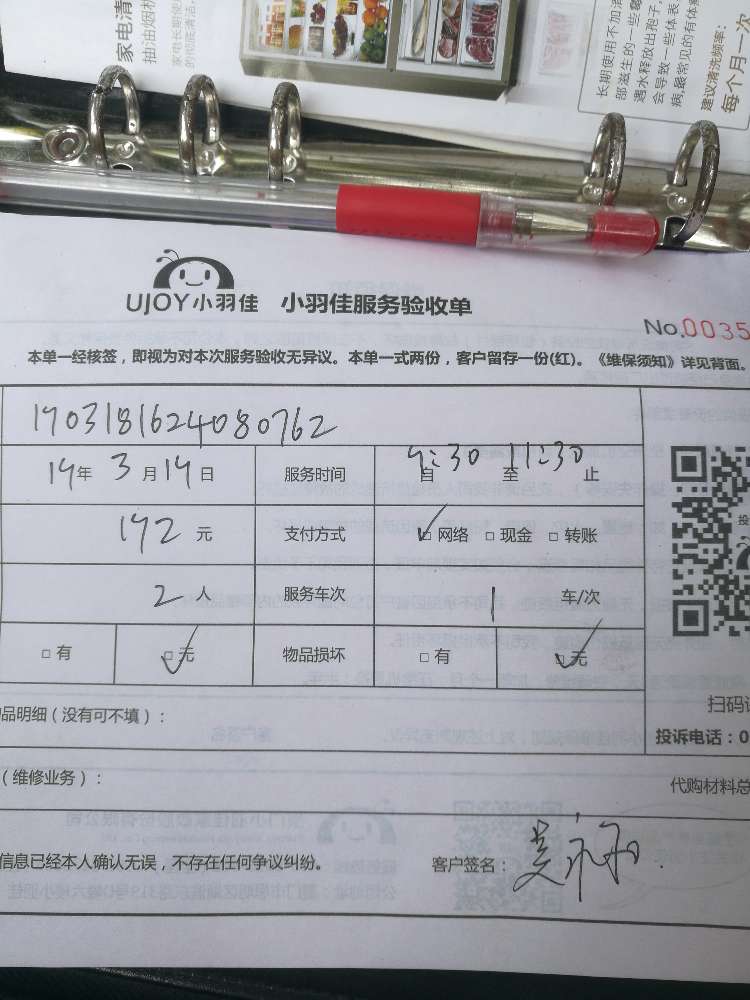 家电清
抽油烟机
家电长期使
的彻底清品,
长期使用不加清
部滋生的一些霉
遇水释放出孢子,
会导致一些体表
病,最常见的有体癣
建议清洗频率:
每个月一次
UJOY小羽佳 小羽佳服务验收单
No.0035
本单一经核签,即视为对本次服务验收无异议。本单一式两份,客户留存一份(红)。《维保须知》详见背面。
1903181624080762
19年3月19日 服务时间 9:30自 至11:30止
192元 支付方式 ☑网络 □现金 □转账
2人 服务车次 1 车/次
□有 ☑无 物品损坏 □有 ☑无
扫码
品明细(没有可不填):
投诉电话:0
(维修业务):
代购材料总
信息已经本人确认无误,不存在任何争议纠纷。 客户签名: